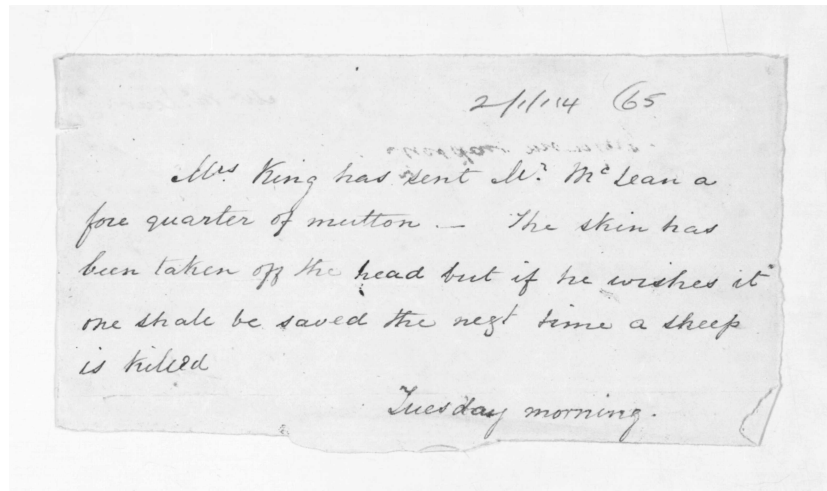 2/1/14 (65
Mrs King has sent Mr. McLean a
fore quarter of mutton — The skin has
been taken off the head but if he wishes it
one shall be saved the next time a sheep
is killed
Tuesday morning.